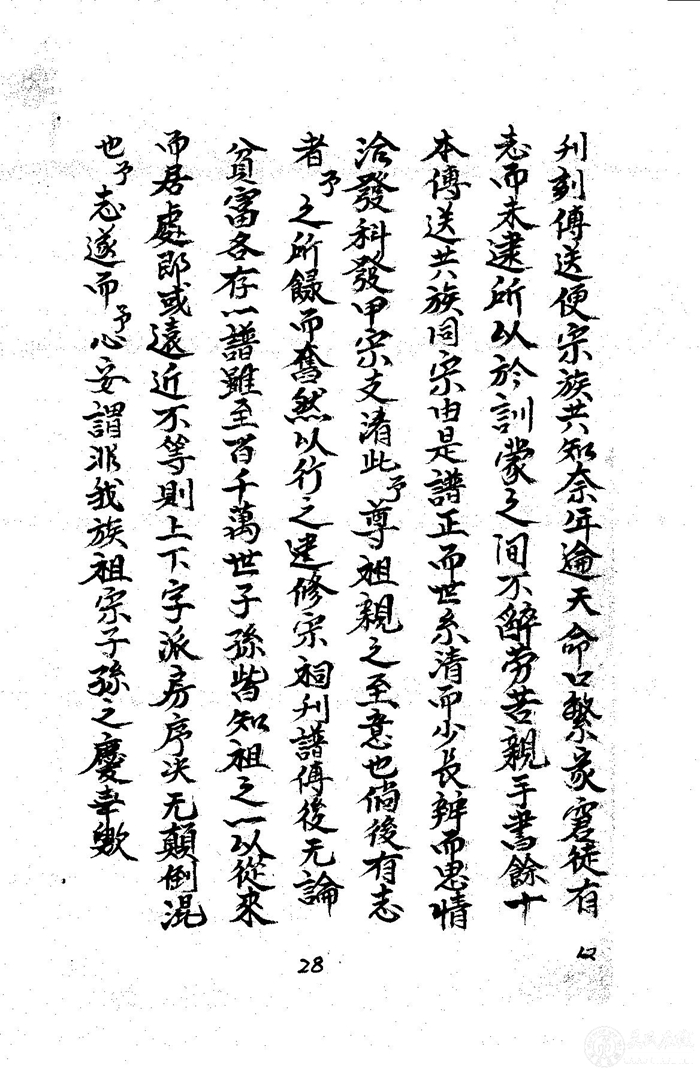 刋刻傳送使宗族共知奈年逾天命口繁家窘徒有
志而未逮所以於訓蒙之间不辭劳苦親手書餘十
本傳送共族同宗由是譜正而世系清而少長辨而恩情
洽發科發甲宗支清此予尊祖親之至意也倘後有志
者予之所録而奮然以行之建修宗祠刋譜傳後无論
貧富各存一譜雖至百千萬世子孫皆知祖之一以從來
而居處即或遠近不等則上下字派房序决无顛倒混
也予志遂而予心安謂非我族祖宗子孫之慶幸歟
28